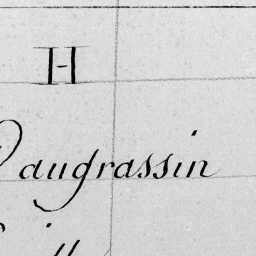 H
Daugrassin